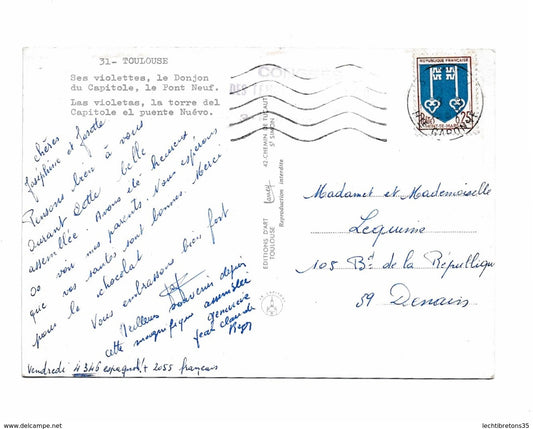 31- TOULOUSE
Ses violettes, le Donjon
du Capitole, le Pont Neuf.
Las violetas, la torre del
Capitole el puente Nuévo.
Chères
Joséphine et
Pensons bien à vous
durant cette belle
assemblée. Avons été heureux
de voir mes parents. Vous espérons
que vos santés sont bonnes. Merci
pour le chocolat
Vous embrassons bien fort
Meilleurs souvenirs depuis
cette magnifique assemblée
Jean Claude
Vendredi 4346 espagnols + 2055 français
EDITIONS D'ART
TOULOUSE
42, CHEMIN DE
ST SIMON
Reproduction interdite
REPUBLIQUE FRANÇAISE
0,25
MONT-DE-MARSAN
GARONNE
Madame et Mademoiselle
Lequime
105 Bd de la République
59 Denain
www.delcampe.net
lechtibretons35